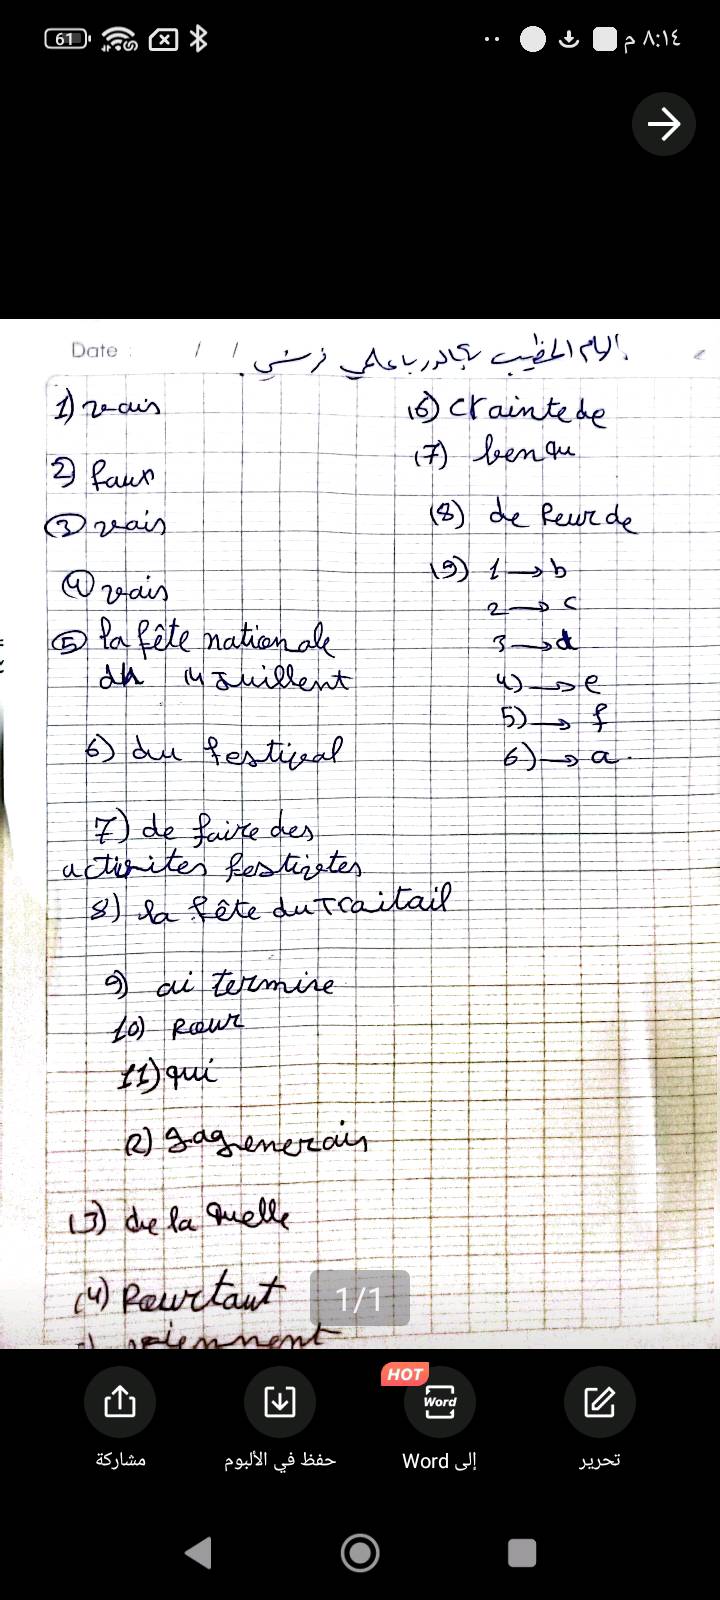 61
م ٨:١٤
Date : / /
1) vais
2) faux
3) vais
4) vais
5) la fête nationale
du 14 Juillent
6) du festival
7) de faire des
activites festivetes
8) la fête du Traitail
9) ai termire
10) Pour
11) qui
12) gagenerais
13) de la quelle
14) Pourtant
viennent
16) crainte de
17) benqu
18) de Peur de
19) 1 → b
2 → c
3 → d
4) → e
5) → f
6) → a.
1/1
HOT
Word
مشاركة
حفظ في الألبوم
إلى Word
تحرير